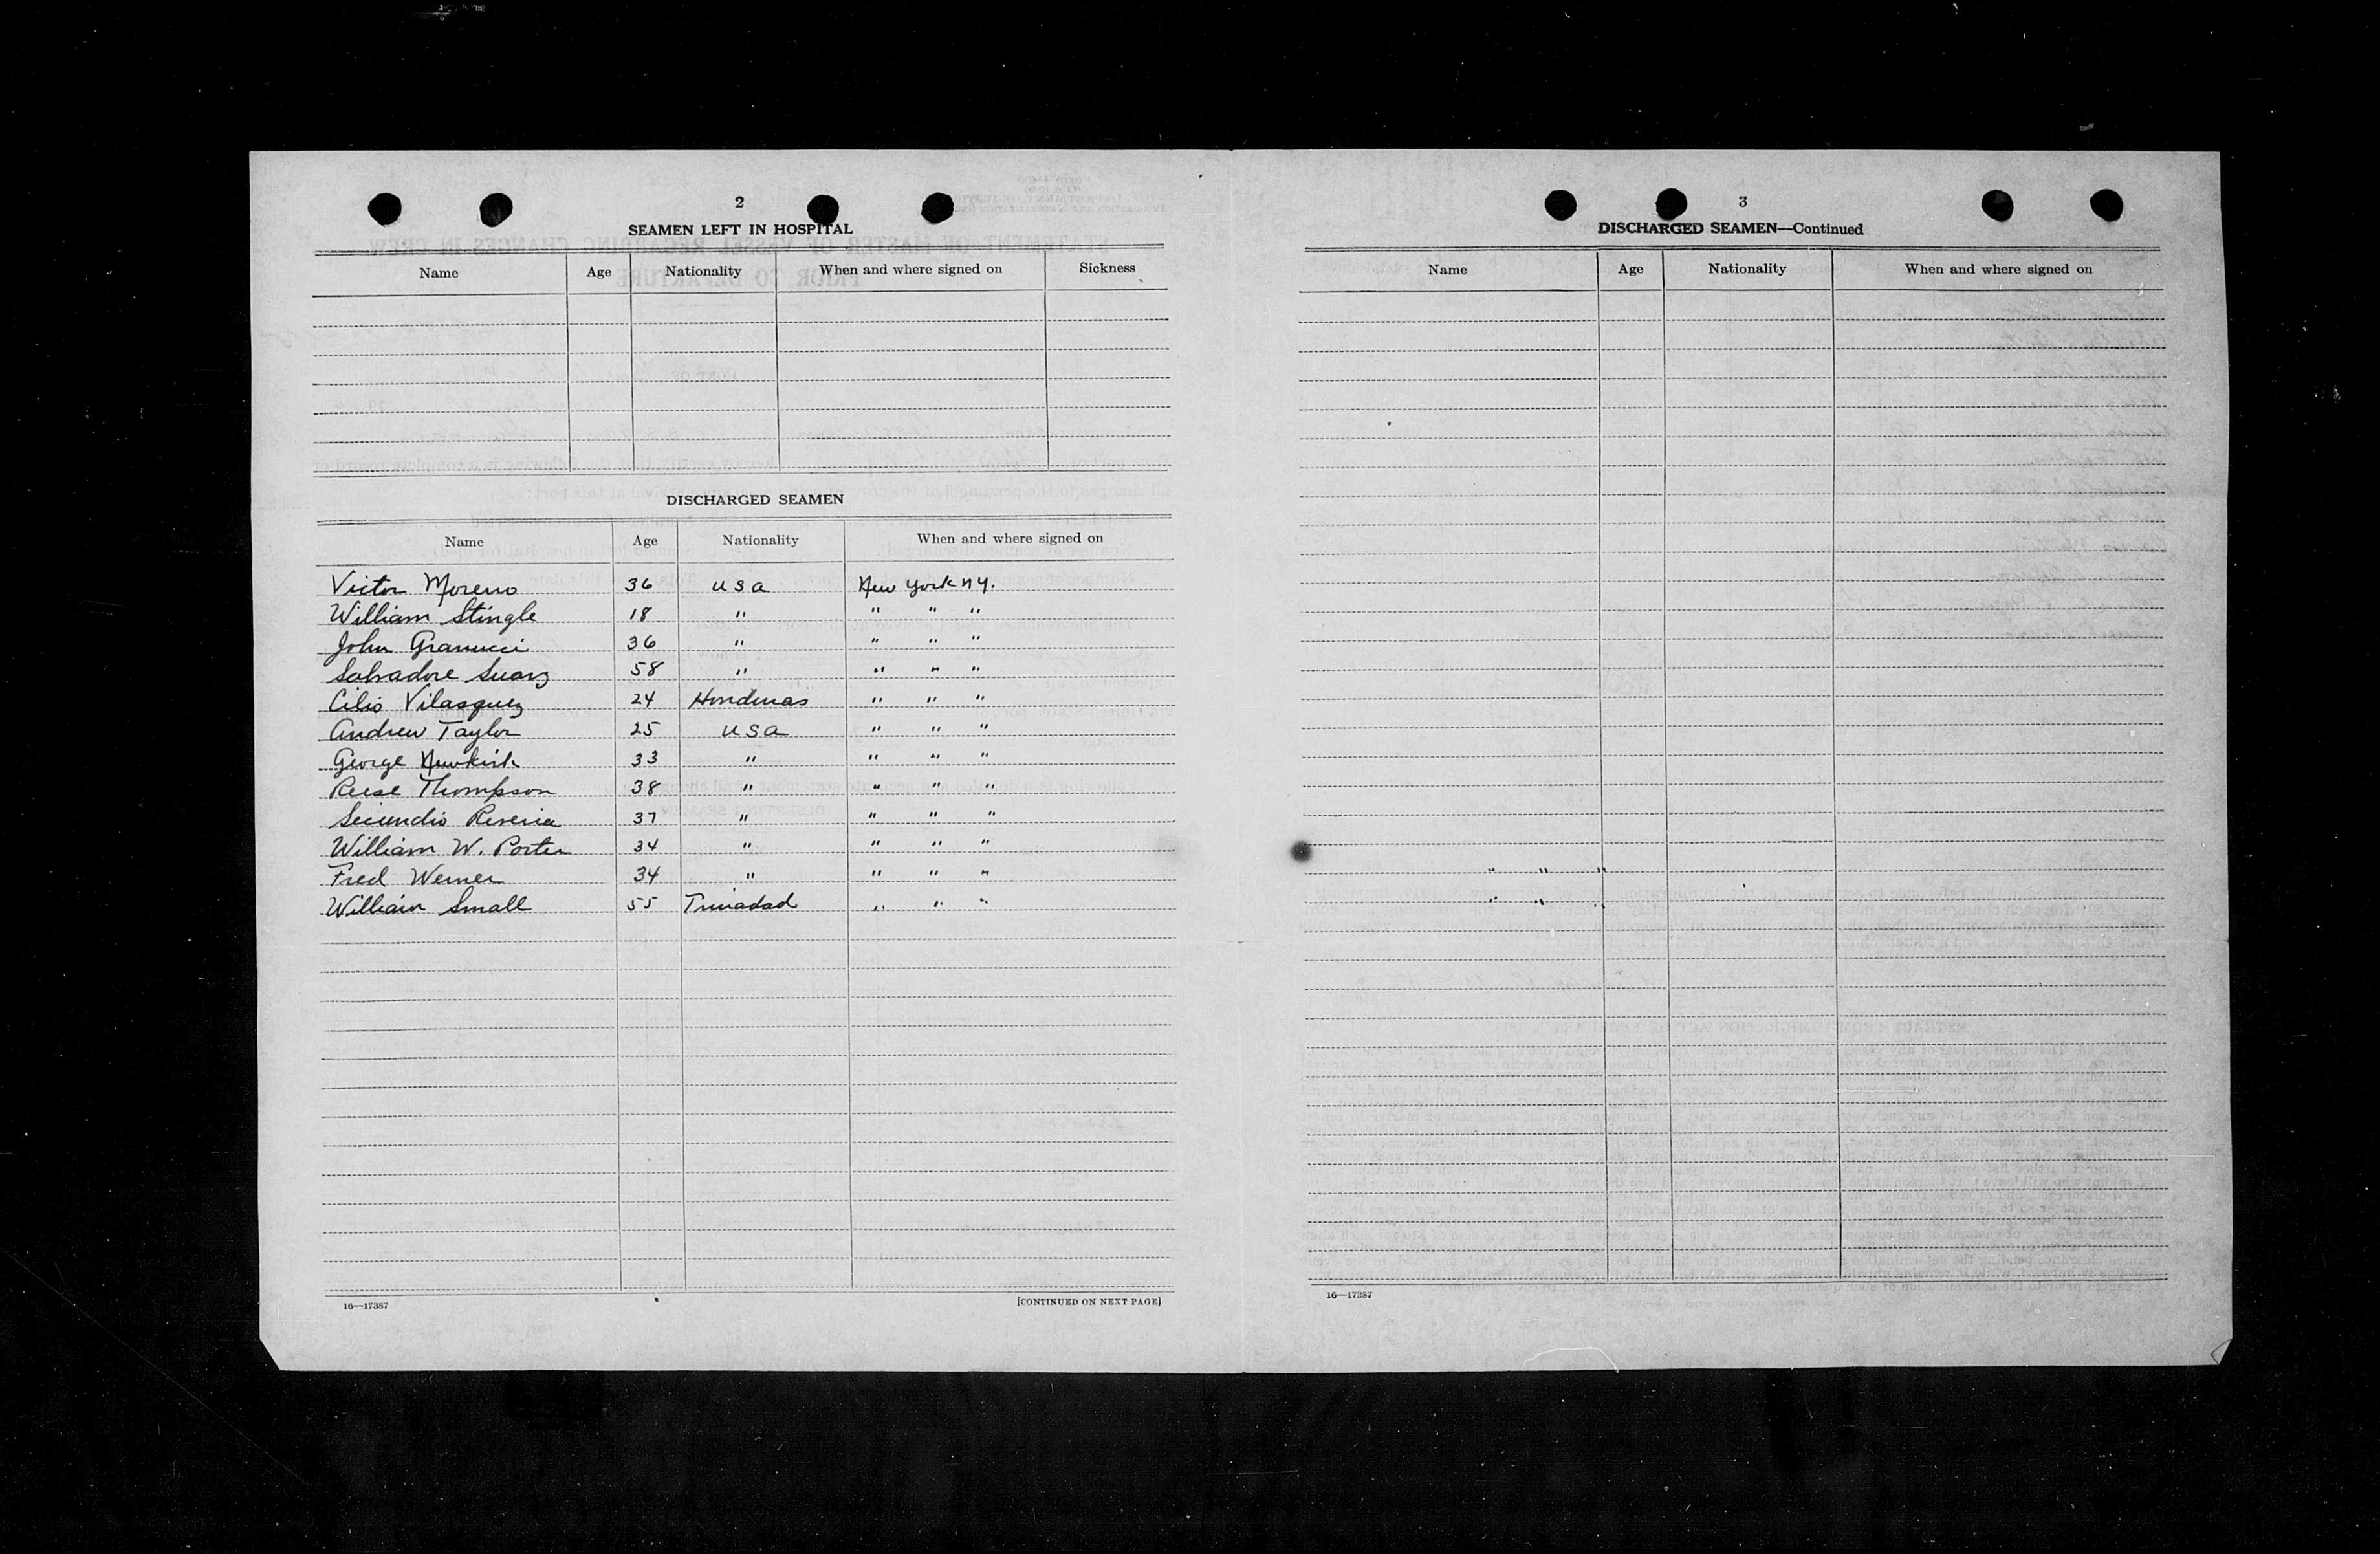 2
SEAMEN LEFT IN HOSPITAL
Name Age Nationality When and where signed on Sickness
DISCHARGED SEAMEN
Name Age Nationality When and where signed on
Victor Moreno 36 USA New York NY.
William Stingle 18 " " " "
John Granucci 36 " " " "
Salvadore Suarz 58 " " " "
Cilio Vilasquez 24 Honduras " " "
Andrew Taylor 25 USA " " "
George Newkirk 33 " " " "
Reese Thompson 38 " " " "
Secundio 37 " " " "
William W. Porter 34 " " " "
Fred Werner 34 " " " "
William Small 55 Trinadad " " "
16—17387 [CONTINUED ON NEXT PAGE]
3
DISCHARGED SEAMEN—Continued
Name Age Nationality When and where signed on
" " "
" " "
16—17387